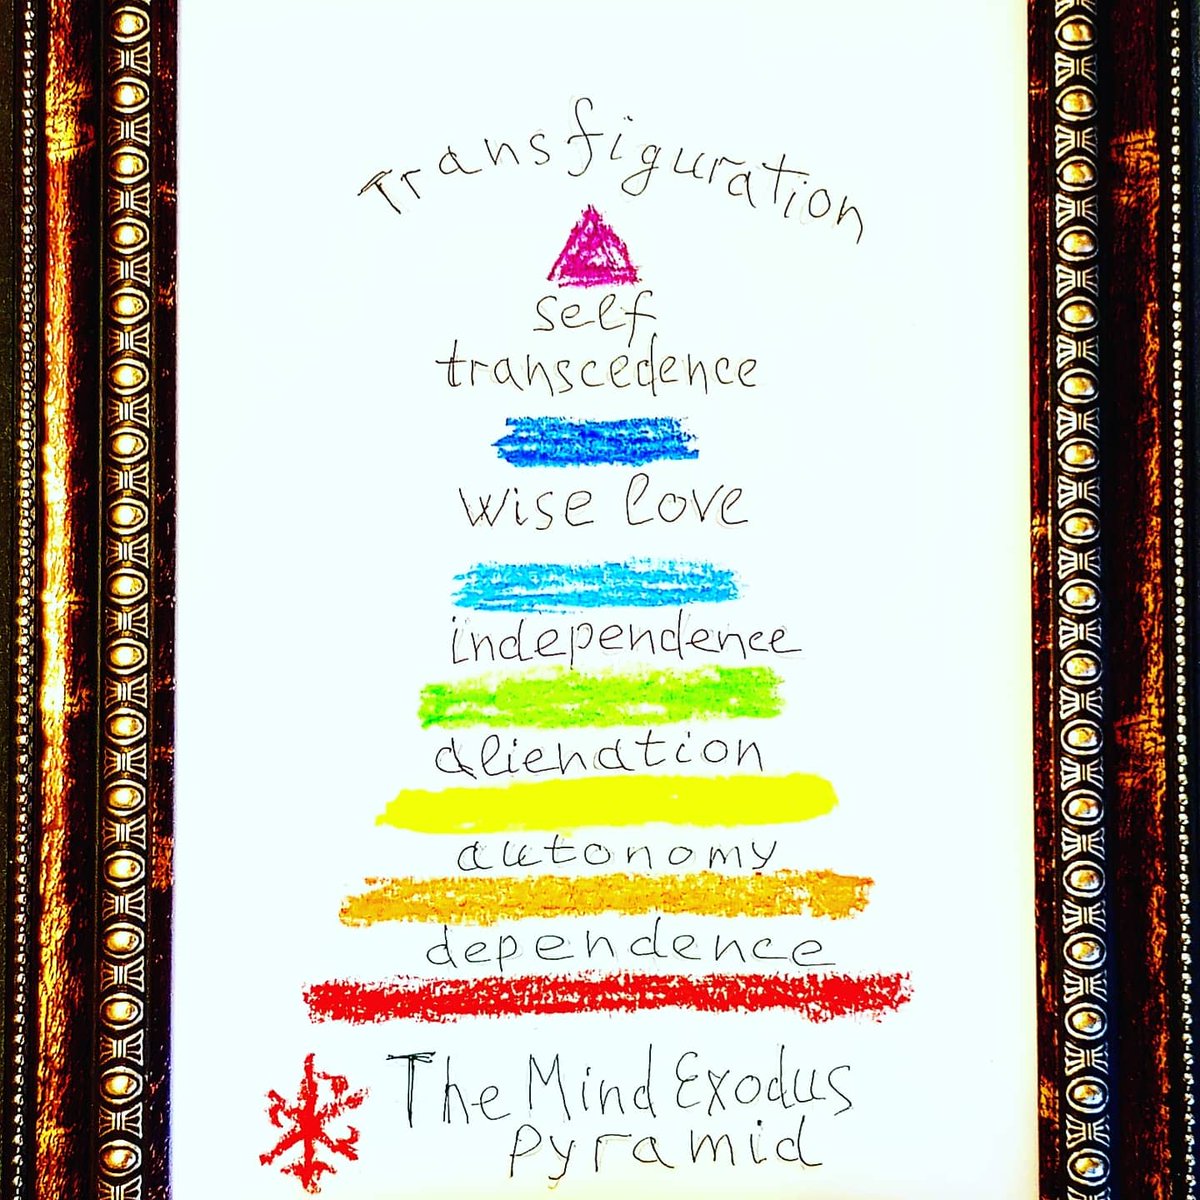 Transfiguration
self
transcedence
wise love
independence
alienation
autonomy
dependence
The Mind Exodus
pyramid